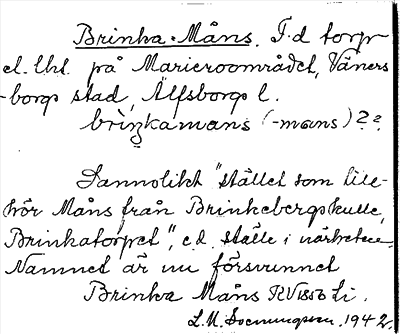 Brinka-Måns. F.d torp
el. lht. på Marieroområdet, Väners
-borgs stad, Älfsborgs l.
brinkamåns (-måns) 2 2
Sannolikt "stället som tille-
hör Måns från Brinkebergskulle,
Brinkatorpet", e.d. ställe i närheten.
Namnet är nu försvunnet
Brinka Måns RV 1856 li.
L.M. 1942.